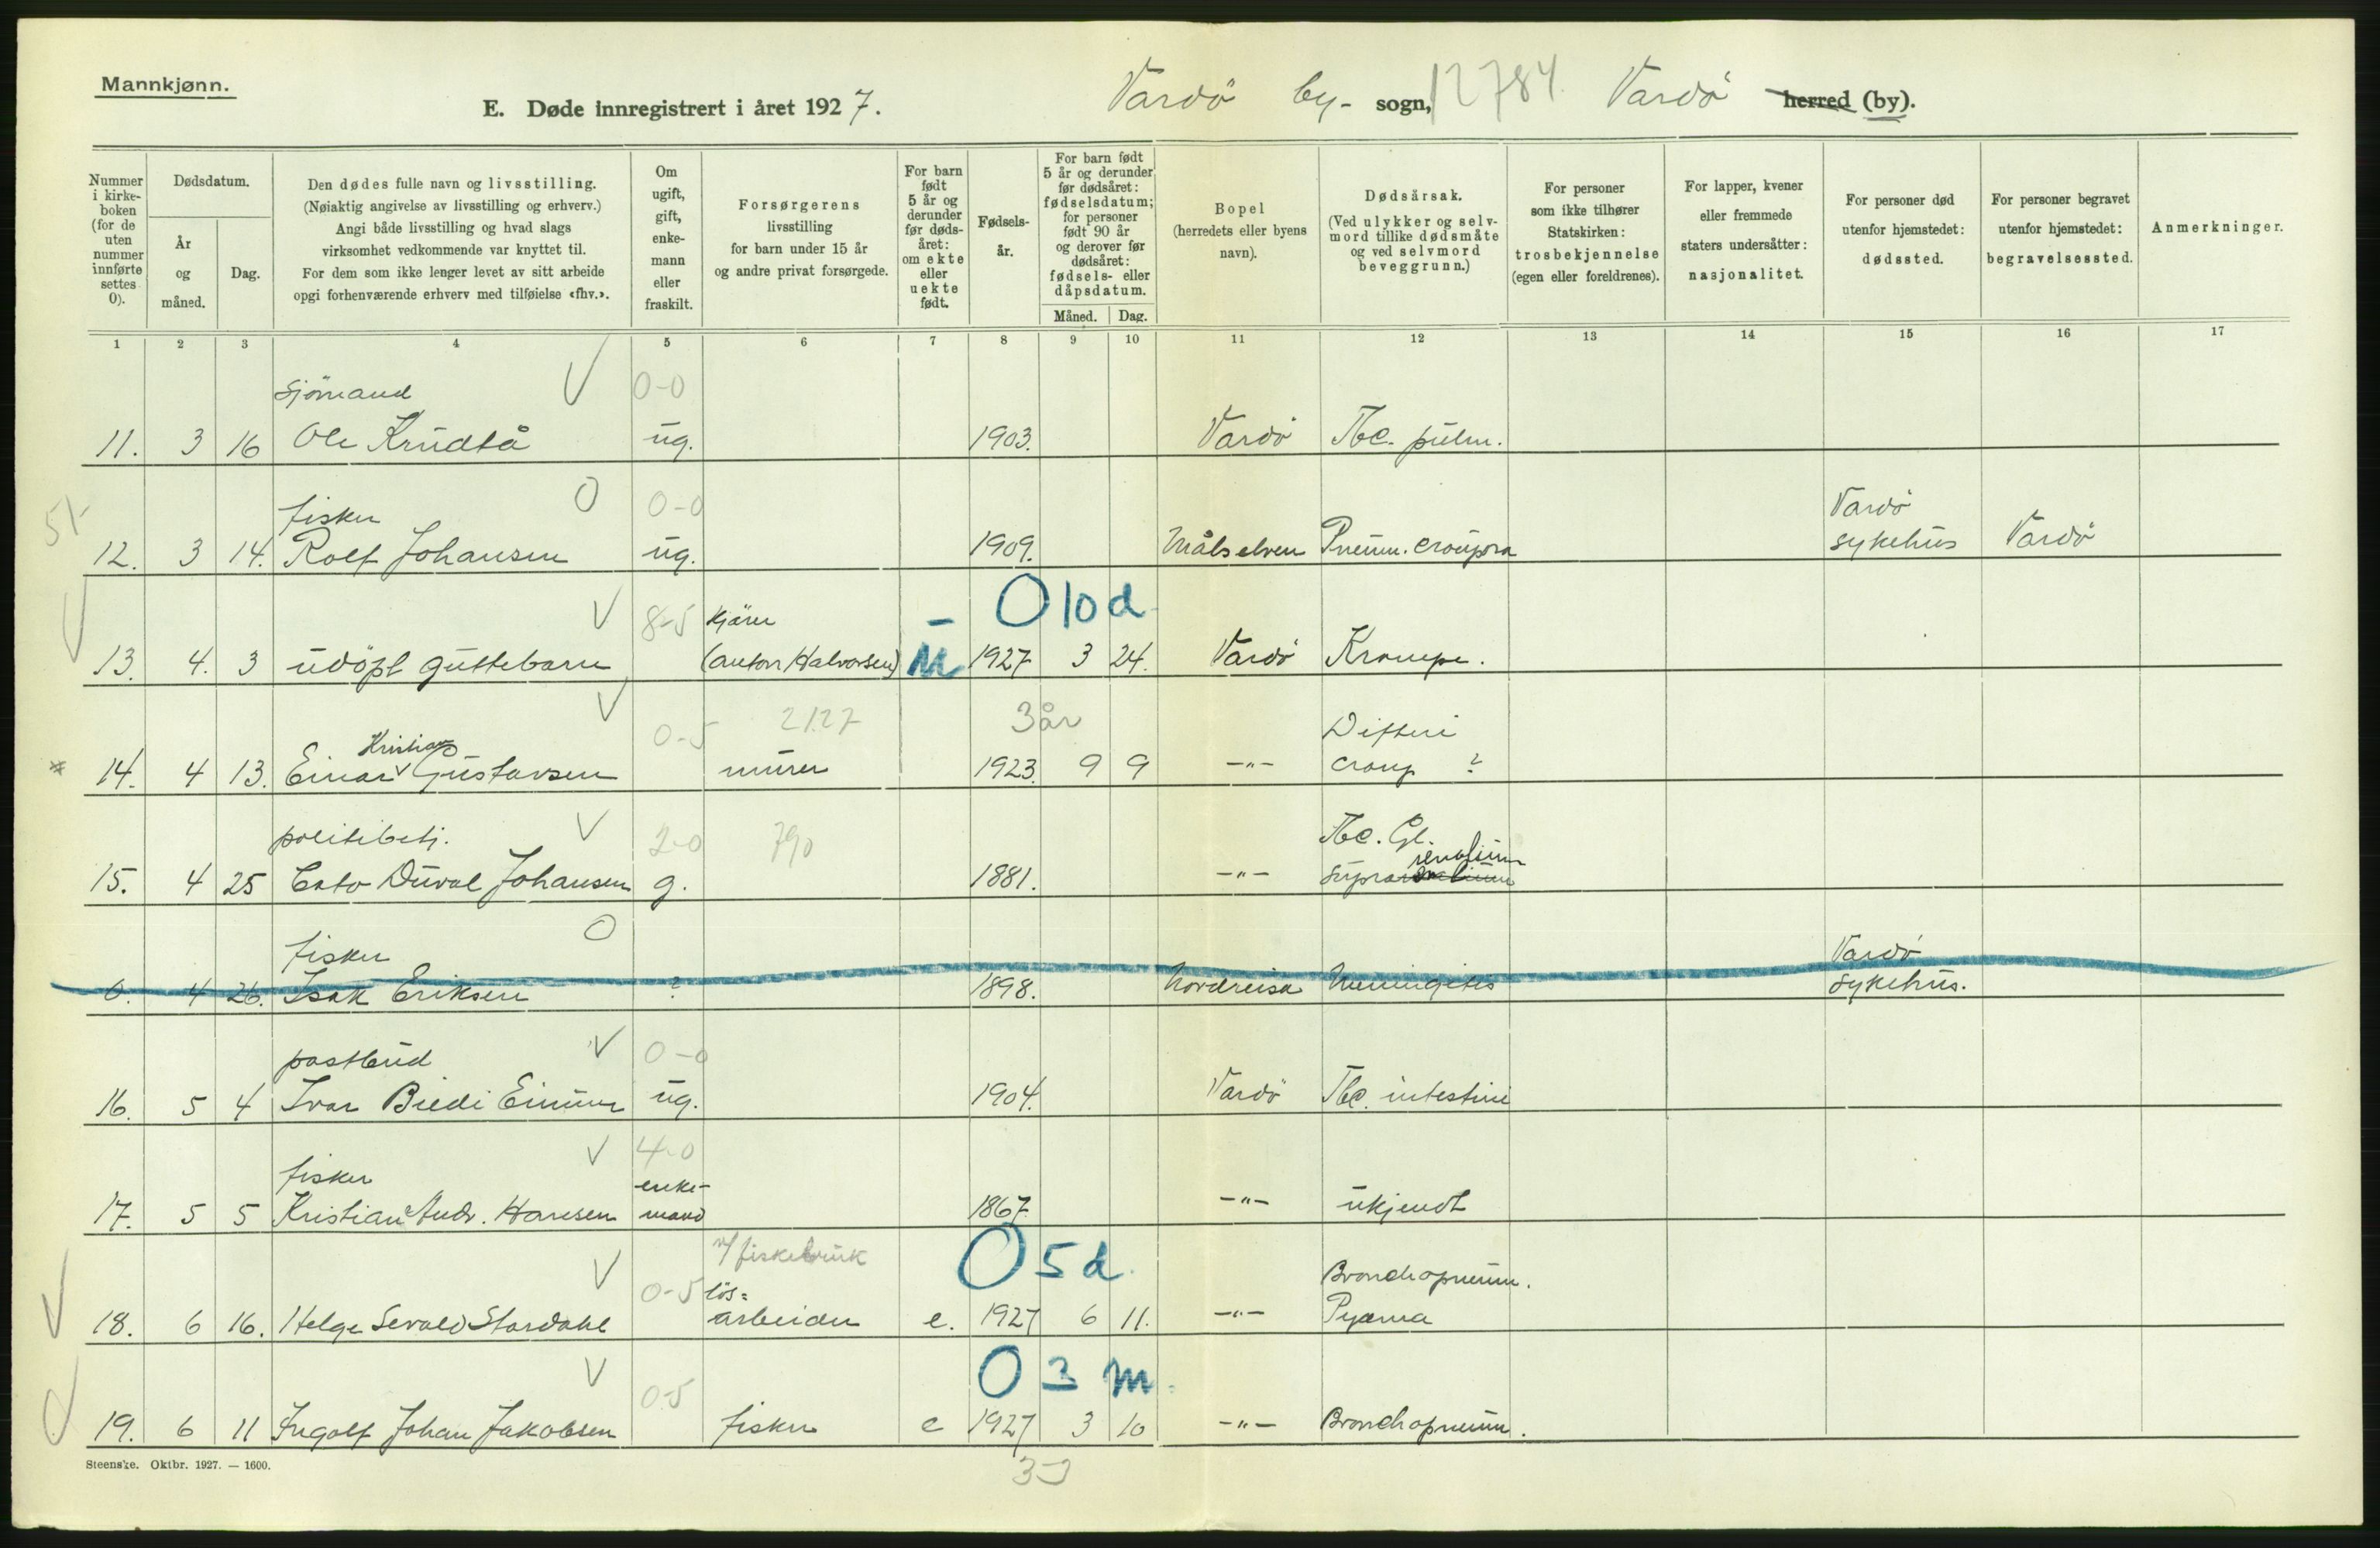 Mannkjønn.
E. Døde innregistrert i året 1927.
Vardö by- sogn, 12784. Vardö herred (by).
Nummer i kirkeboken (for de uten nummer innførte settes 0).
Dødsdatum.
År og måned.
Dag.
Den dødes fulle navn og livsstilling.
(Nøiaktig angivelse av livsstilling og erhverv.)
Angi både livsstilling og hvad slags
virksomhet vedkommende var knyttet til.
For dem som ikke lenger levet av sitt arbeide
opgi forhenværende erhverv med tilføielse «fhv.».
Om ugift, gift, enkemann eller fraskilt.
Forsørgerens
livsstilling
for barn under 15 år
og andre privat forsørgede.
For barn født 5 år og derunder før dødsåret: om ekte eller uekte født.
Fødselsår.
For barn født 5 år og derunder før dødsåret: fødselsdatum; for personer født 90 år og derover før dødsåret: fødsels- eller dåpsdatum.
Måned. Dag.
Bopel
(herredets eller byens navn).
Dødsårsak.
(Ved ulykker og selvmord tillike dødsmåte og ved selvmord beveggrunn.)
For personer som ikke tilhører Statskirken: trosbekjennelse (egen eller foreldrenes).
For lapper, kvener eller fremmede staters undersåtter: nasjonalitet.
For personer død utenfor hjemstedet: dødssted.
For personer begravet utenfor hjemstedet: begravelsessted.
Anmerkninger.
1 2 3 4 5 6 7 8 9 10 11 12 13 14 15 16 17
Sjömand V 0-0
11. 3 16 Ole Krudtå ug. 1903. Vardö Tbc. pulm.
51-
fisker O 0-0 Vardö
12. 3 14. Rolf Johansen ug. 1909. Målselven Pneum. crouposa sykehus Vardö
V V 8-5 Kjörer - O 10 d.
13. 4. 3 udöpt guttebarn (Anton Halvorsen) u 1927 3 24. Vardö Krampe.
V 0-5 2127 3 år Difteri
Kristian
* 14. 4 13. Einar Gustavsen murer 1923. 9 9 -"- croup ?
politibetj. V 2-0 790 Tbc. Gl.
renalium
15. 4 25 Cato Duval Johansen g. 1881. -"- Supra
fisker O Vardö
0. 4 26. Isak Eriksen ? 1898. Nordreisa Meningitis Sykehus.
postbud V 0-0
16. 5 4 Ivar Biedi ug. 1904. Vardö Tbc. intestini
fisker V 4-0 enke-
17. 5 5 Kristian Andr. Hansen mand 1867. -"- ukjendt
v/ fiskebruk O 5 d.
V V 0-5 lös= Bronchopneum.
18. 6 16. Helge Sevald Stordahl arbeider e. 1927 6 11. -"- Pyæmia
V V 0-5 O 3 m.
19. 6 11 Ingolf Johan Jakobsen fisker e 1927 3 10 -"- Bronchopneum.
Steenske. Oktbr. 1927. — 1600.